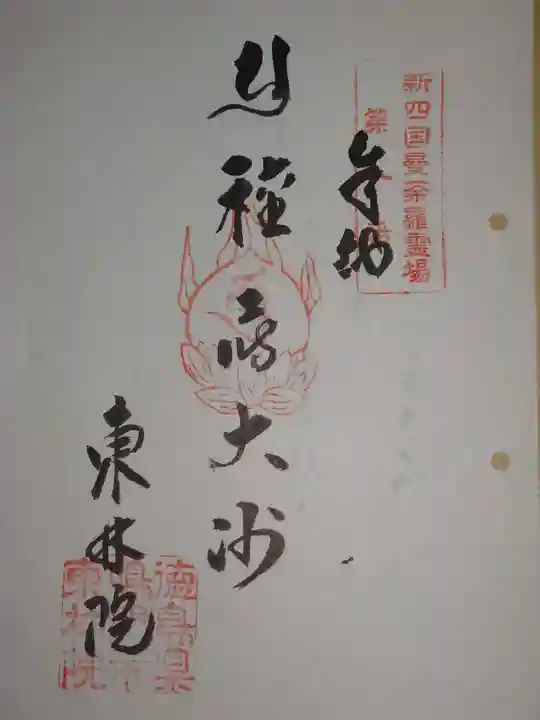 新四国曼荼羅霊場
第
番
奉納
種蒔大師
東林院
徳島県
鳴門市
東林院